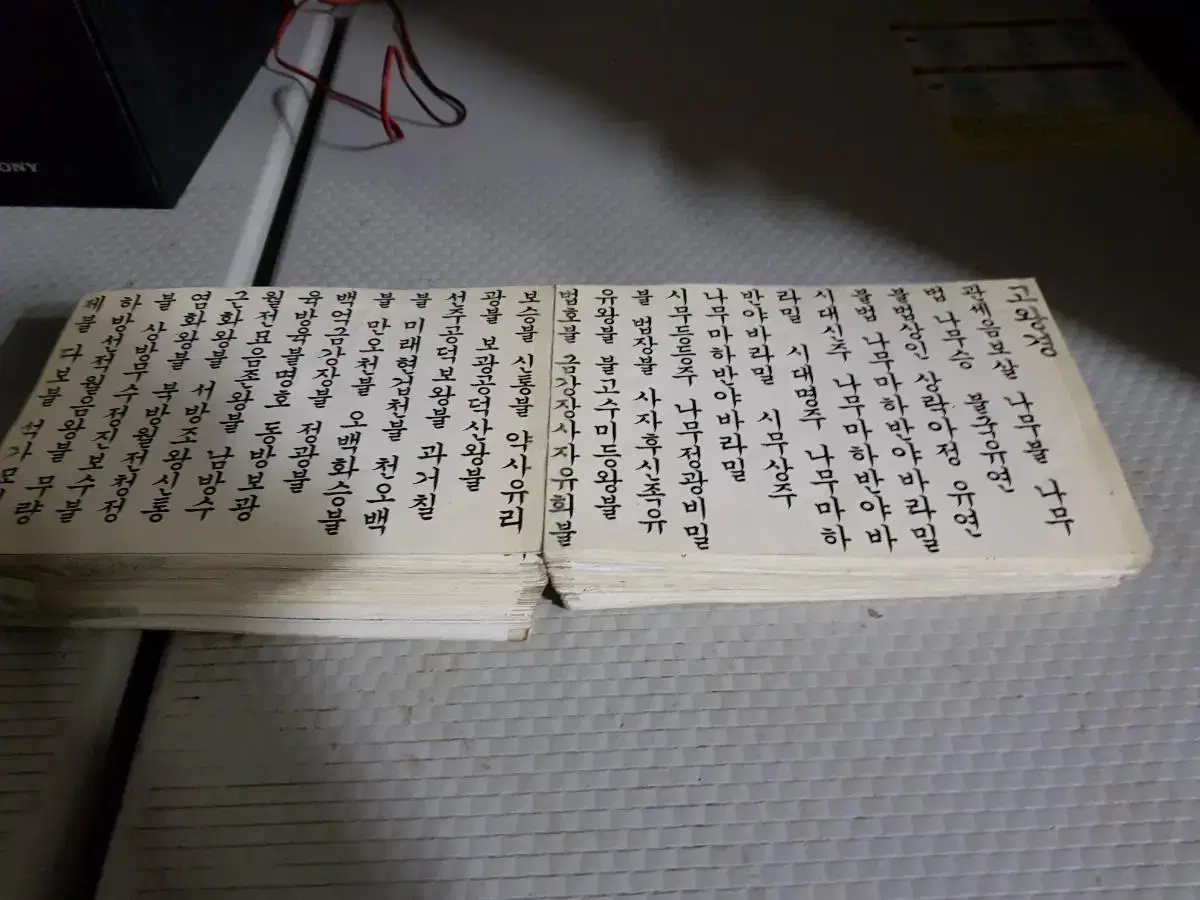 고왕경
관세음보살 나무불 나무
법 나무승 불국유연
불법상인 상락아정 유연
불법 나무마하반야바라밀
시대신주 나무마하반야바
라밀 시대명주 나무마하
반야바라밀 시무상주
나무마하반야바라밀
시무등등주 나무정광비밀
불 법장불 사자후신족유
유왕불 불고수미등왕불
법호불 금강장사자유희불
보승불 신통불 약사유리
광불 보광공덕산왕불
선주공덕보왕불 과거칠
불 미래현겁천불 천오백
불 만오천불 오백화승불
백억금강장불 정광불
육방육불명호 동방보광
월전묘음존왕불 남방수
근화왕불 서방조왕신통
염화왕불 북방월전청정
불 상방무수정진보수불
하방선적월음왕불 무량
제불 다보불 석가모니
SONY